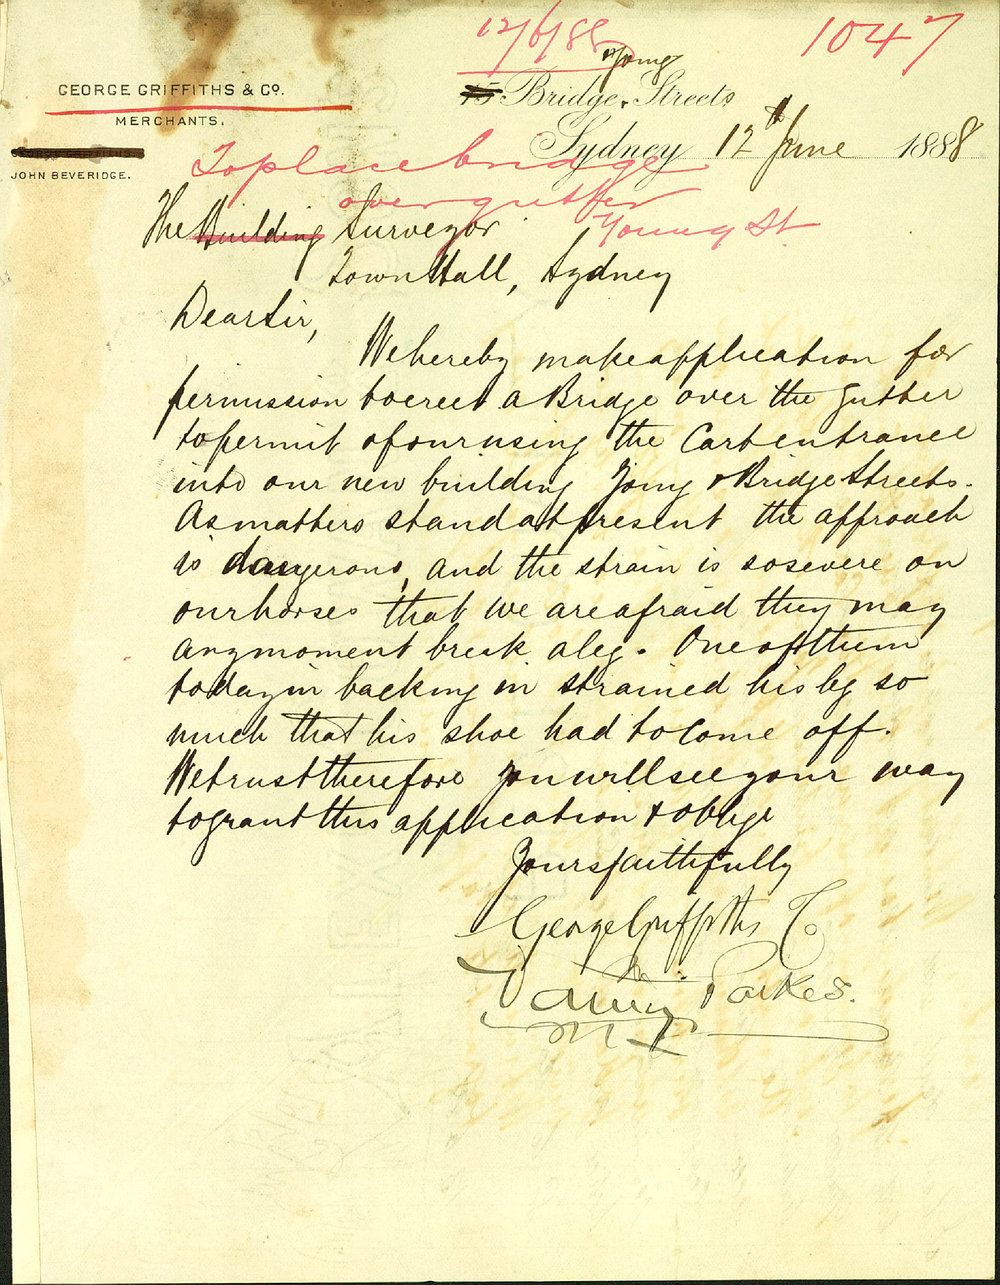 12/6/88
1047
GEORGE GRIFFITHS & Co.
MERCHANTS.
JOHN BEVERIDGE.
& Young
15 Bridge Streets
Sydney 12th June 1888
To place bridge
over gutter
Young St
The Building Surveyor
Town Hall, Sydney
Dear Sir,
We hereby make application for
permission to erect a Bridge over the gutter
to permit of our using the Cart entrance
into our new building Young & Bridge Streets.
As matters stand at present the approach
is dangerous, and the strain is so severe on
our horses that we are afraid they may
any moment break a leg. One of them
today in backing in strained his leg so
much that his shoe had to come off.
We trust therefore you will see your way
to grant this application & oblige
Yours faithfully
George Griffiths Co
Parkes.